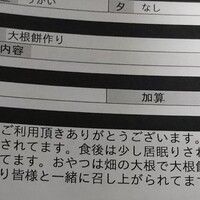 うがい
タ なし
大根餅作り
内容
加算
ご利用頂きありがとうございます。
されてます。食後は少し居眠りされ
てます。おやつは畑の大根で大根餅
り皆様と一緒に召し上がられてます